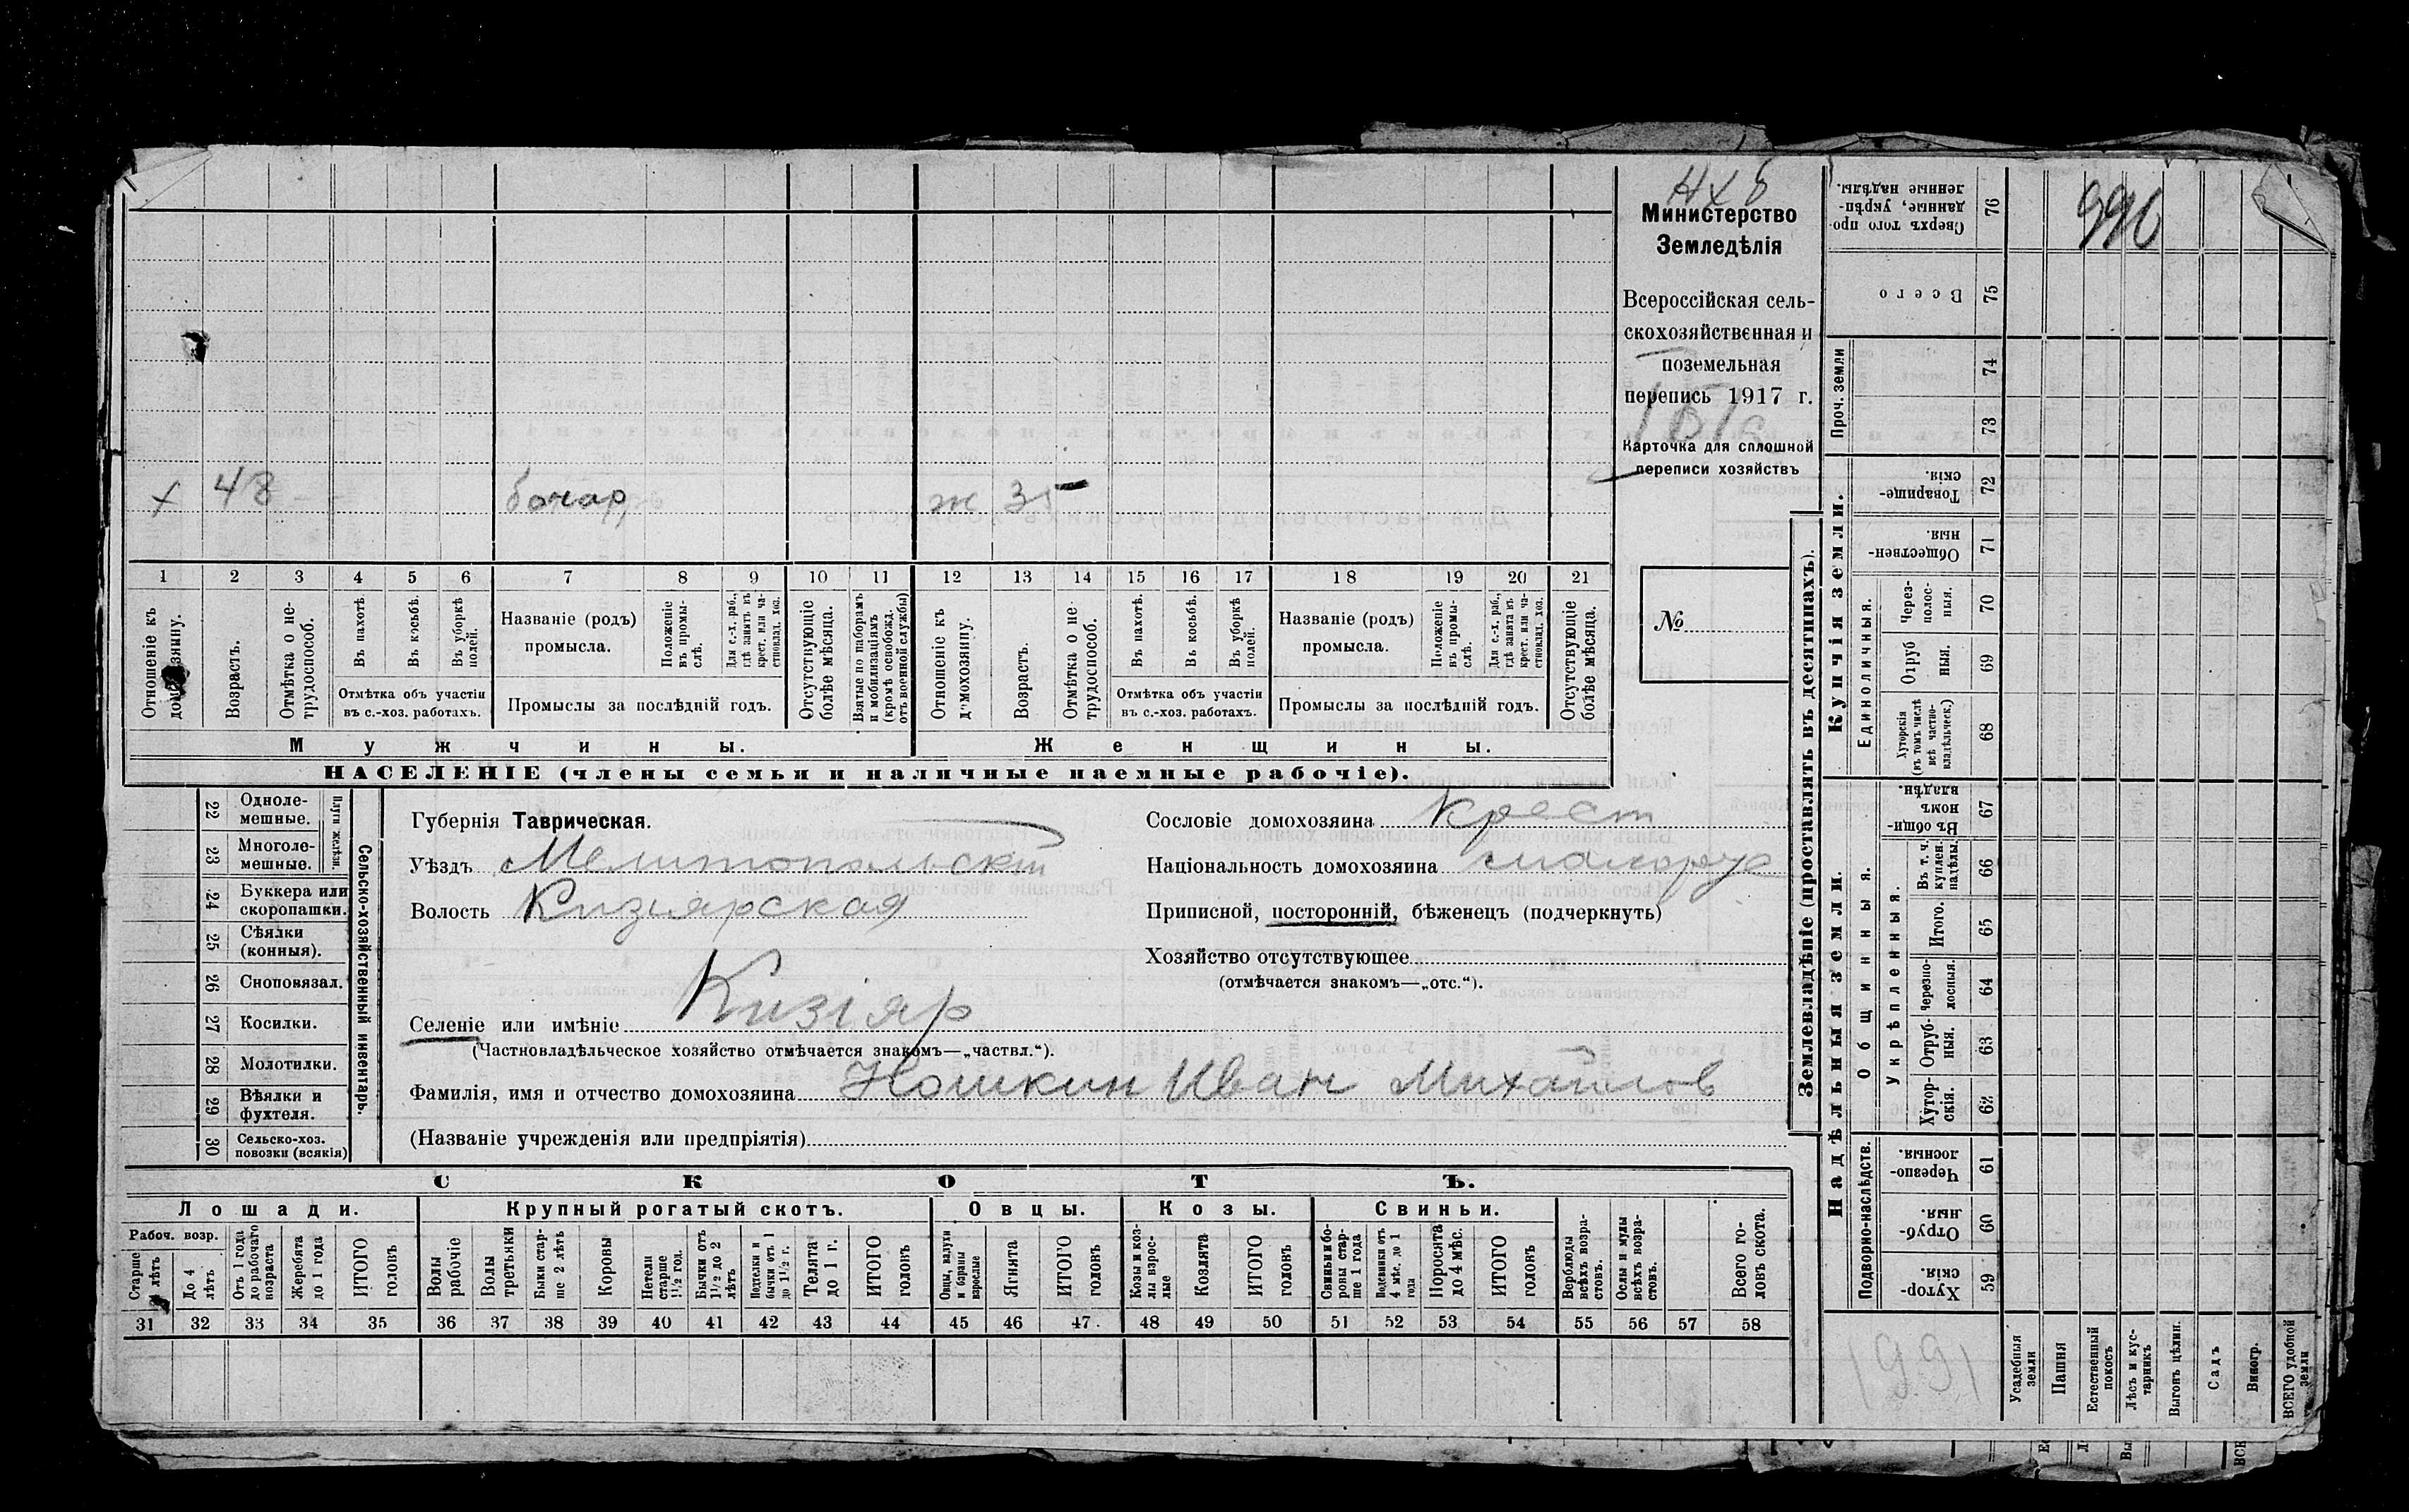 Н Х б
990
Министерство
Земледѣлія
Всероссійская сель-
скохозяйственная и
поземельная
перепись 1917 г.
Карточка для сплошной
переписи хозяйствъ
№
х 48 бочар, ж 35
1 2 3 4 5 6 7 8 9 10 11 12 13 14 15 16 17 18 19 20 21
Отношеніе къ домохозяину.
Возрастъ.
Отмѣтка о не-трудоспособ.
Въ пахотѣ.
Въ косьбѣ.
Въ уборкѣ полей.
Отмѣтка объ участіи
въ с.-хоз. работахъ.
Названіе (родъ)
промысла.
Положеніе въ промы-слѣ.
Для с.-х. раб., гдѣ занятъ въ крест. или ча-стновлад. хоз.
Промыслы за послѣдній годъ.
Отсутствующіе болѣе мѣсяца.
Взятые по наборамъ и мобилизаціямъ (кромѣ освобожд. отъ военной службы)
Отношеніе къ домохозяину.
Возрастъ.
Отмѣтка о не-трудоспособ.
Въ пахотѣ.
Въ косьбѣ.
Въ уборкѣ полей.
Отмѣтка объ участіи
въ с.-хоз. работахъ.
Названіе (родъ)
промысла.
Положеніе въ промы-слѣ.
Для с.-х. раб., гдѣ занята въ крест. или ча-стновлад. хоз.
Промыслы за послѣдній годъ.
Отсутствующіе болѣе мѣсяца.
Мужчины. Женщины.
НАСЕЛЕНІЕ (члены семьи и наличные наемные рабочіе).
22 Одноле-мешные.
23 Многоле-мешные.
Плуги желѣзн.
24 Буккера или скоропашки.
25 Сѣялки (конныя).
26 Сноповязал.
27 Косилки.
28 Молотилки.
29 Вѣялки и фухтеля.
30 Сельско-хоз. повозки (всякія)
Сельско-хозяйственный инвентарь.
Губернія Таврическая.
Уѣздъ Мелитопольскій
Волость Кизіярская
Селеніе или имѣніе Кизіяр
(Частновладѣльческое хозяйство отмѣчается знакомъ—„частвл.“).
Фамилія, имя и отчество домохозяина Ношкин Иван Михайлов
(Названіе учрежденія или предпріятія)
Сословіе домохозяина крест
Національность домохозяина малорус
Приписной, посторонній, бѣженецъ (подчеркнуть)
Хозяйство отсутствующее
(отмѣчается знакомъ—„отс.“).
СКОТЪ.
Лошади. Крупный рогатый скотъ. Овцы. Козы. Свиньи.
Рабоч. возр.
Старше 4 лѣтъ
До 4 лѣтъ
Отъ 1 года до рабочаго возраста
Жеребята до 1 года
ИТОГО головъ
Волы рабочіе
Волы третьяки
Быки стар-ше 2 лѣтъ
Коровы
Нетели старше 1½ год.
Бычки отъ 1½ до 2 лѣтъ
Подтелки и бычки отъ 1 до 1½ г.
Телята до 1 г.
ИТОГО головъ
Овцы, валухи и бараны взрослые
Ягнята
ИТОГО головъ
Козы и коз-лы взрос-лые
Козлята
ИТОГО головъ
Свиньи и бо-ровы стар-ше 1 года
Подсвинки отъ 4 мѣс. до 1 года
Поросята до 4 мѣс.
ИТОГО головъ
Верблюды всѣхъ возра-стовъ.
Ослы и мулы всѣхъ возра-стовъ.
Всего го-ловъ скота.
31 32 33 34 35 36 37 38 39 40 41 42 43 44 45 46 47 48 49 50 51 52 53 54 55 56 57 58
Землевладѣніе (проставлять въ десятинахъ).
Надѣльныя земли. Купчія земли.
Проч. земли
Подворно-наслѣдств.
Общинныя.
Укрѣпленныя.
Единоличныя.
Сверхъ того про-данные, укрѣп-ленные надѣлы. 76
Всего 75
74
73
Товарище-скія. 72
Обществен-ныя. 71
Через-полос-ныя. 70
Отруб-ныя. 69
Хуторскія (въ томъ числѣ всѣ частно-владѣльческ.) 68
Въ общин-номъ владѣн. 67
Въ т. ч. куплен. надѣлы. 66
Итого. 65
Черезпо-лосныя. 64
Отруб-ныя. 63
Хутор-скія. 62
Черезпо-лосныя. 61
Отруб-ныя. 60
Хутор-скія. 59
Усадебныя земли
Пашня
Естественный покосъ
Лѣсъ и кус-тарникъ
Выгонъ цѣлин.
Садъ
Виногр.
ВСЕГО удобной земли